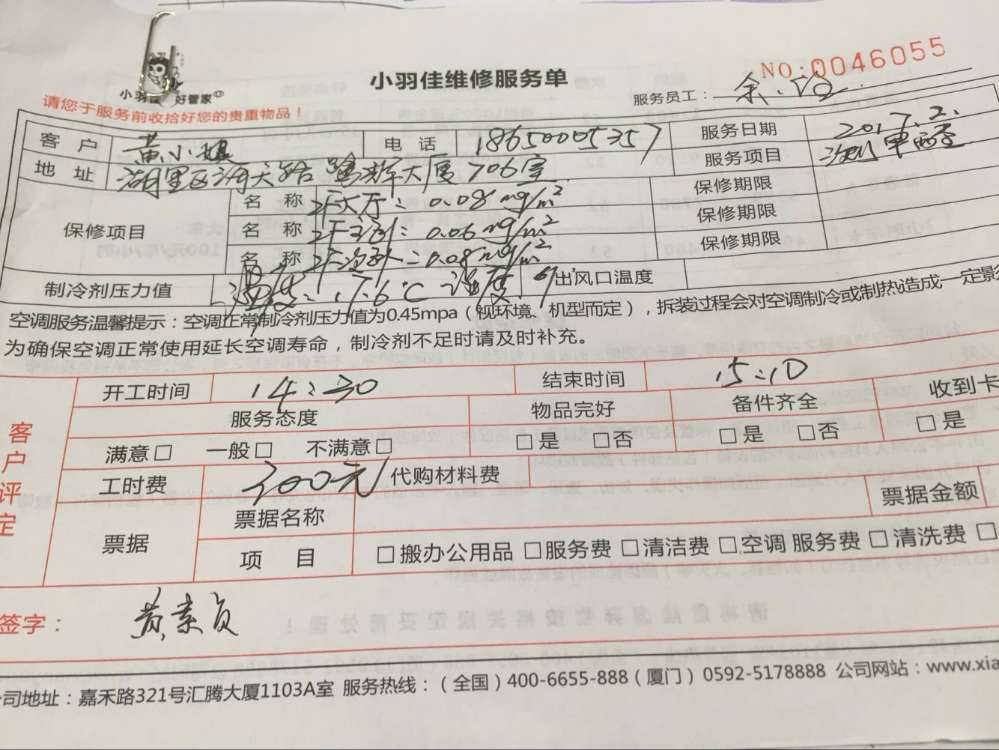 小羽佳维修服务单
NO:0046055
小羽佳 好管家
请您于服务前收拾好您的贵重物品！
服务员工：
客户 黄小姐 电话 18650005357 服务日期 2017.2.
地址 湖里区 大厦706室 服务项目 测甲醛
保修项目
名称 大厅：0.08mg/m² 保修期限
名称 0.06mg/m² 保修期限
名称 0.08mg/m² 保修期限
制冷剂压力值 温度：17.6℃ 湿度： 出风口温度
空调服务温馨提示：空调正常制冷剂压力值为0.45mpa（视环境、机型而定），拆装过程会对空调制冷或制热造成一定影
为确保空调正常使用延长空调寿命，制冷剂不足时请及时补充。
客户评定
开工时间 14:30 结束时间 15:10
服务态度 物品完好 备件齐全 收到卡
满意□ 一般□ 不满意□ □是 □否 □是 □否 □是
工时费 300元 代购材料费
票据 票据名称 票据金额
项目 □搬办公用品 □服务费 □清洁费 □空调服务费 □清洗费 □
签字：
司地址：嘉禾路321号汇腾大厦1103A室 服务热线：（全国）400-6655-888（厦门）0592-5178888 公司网站：www.xia